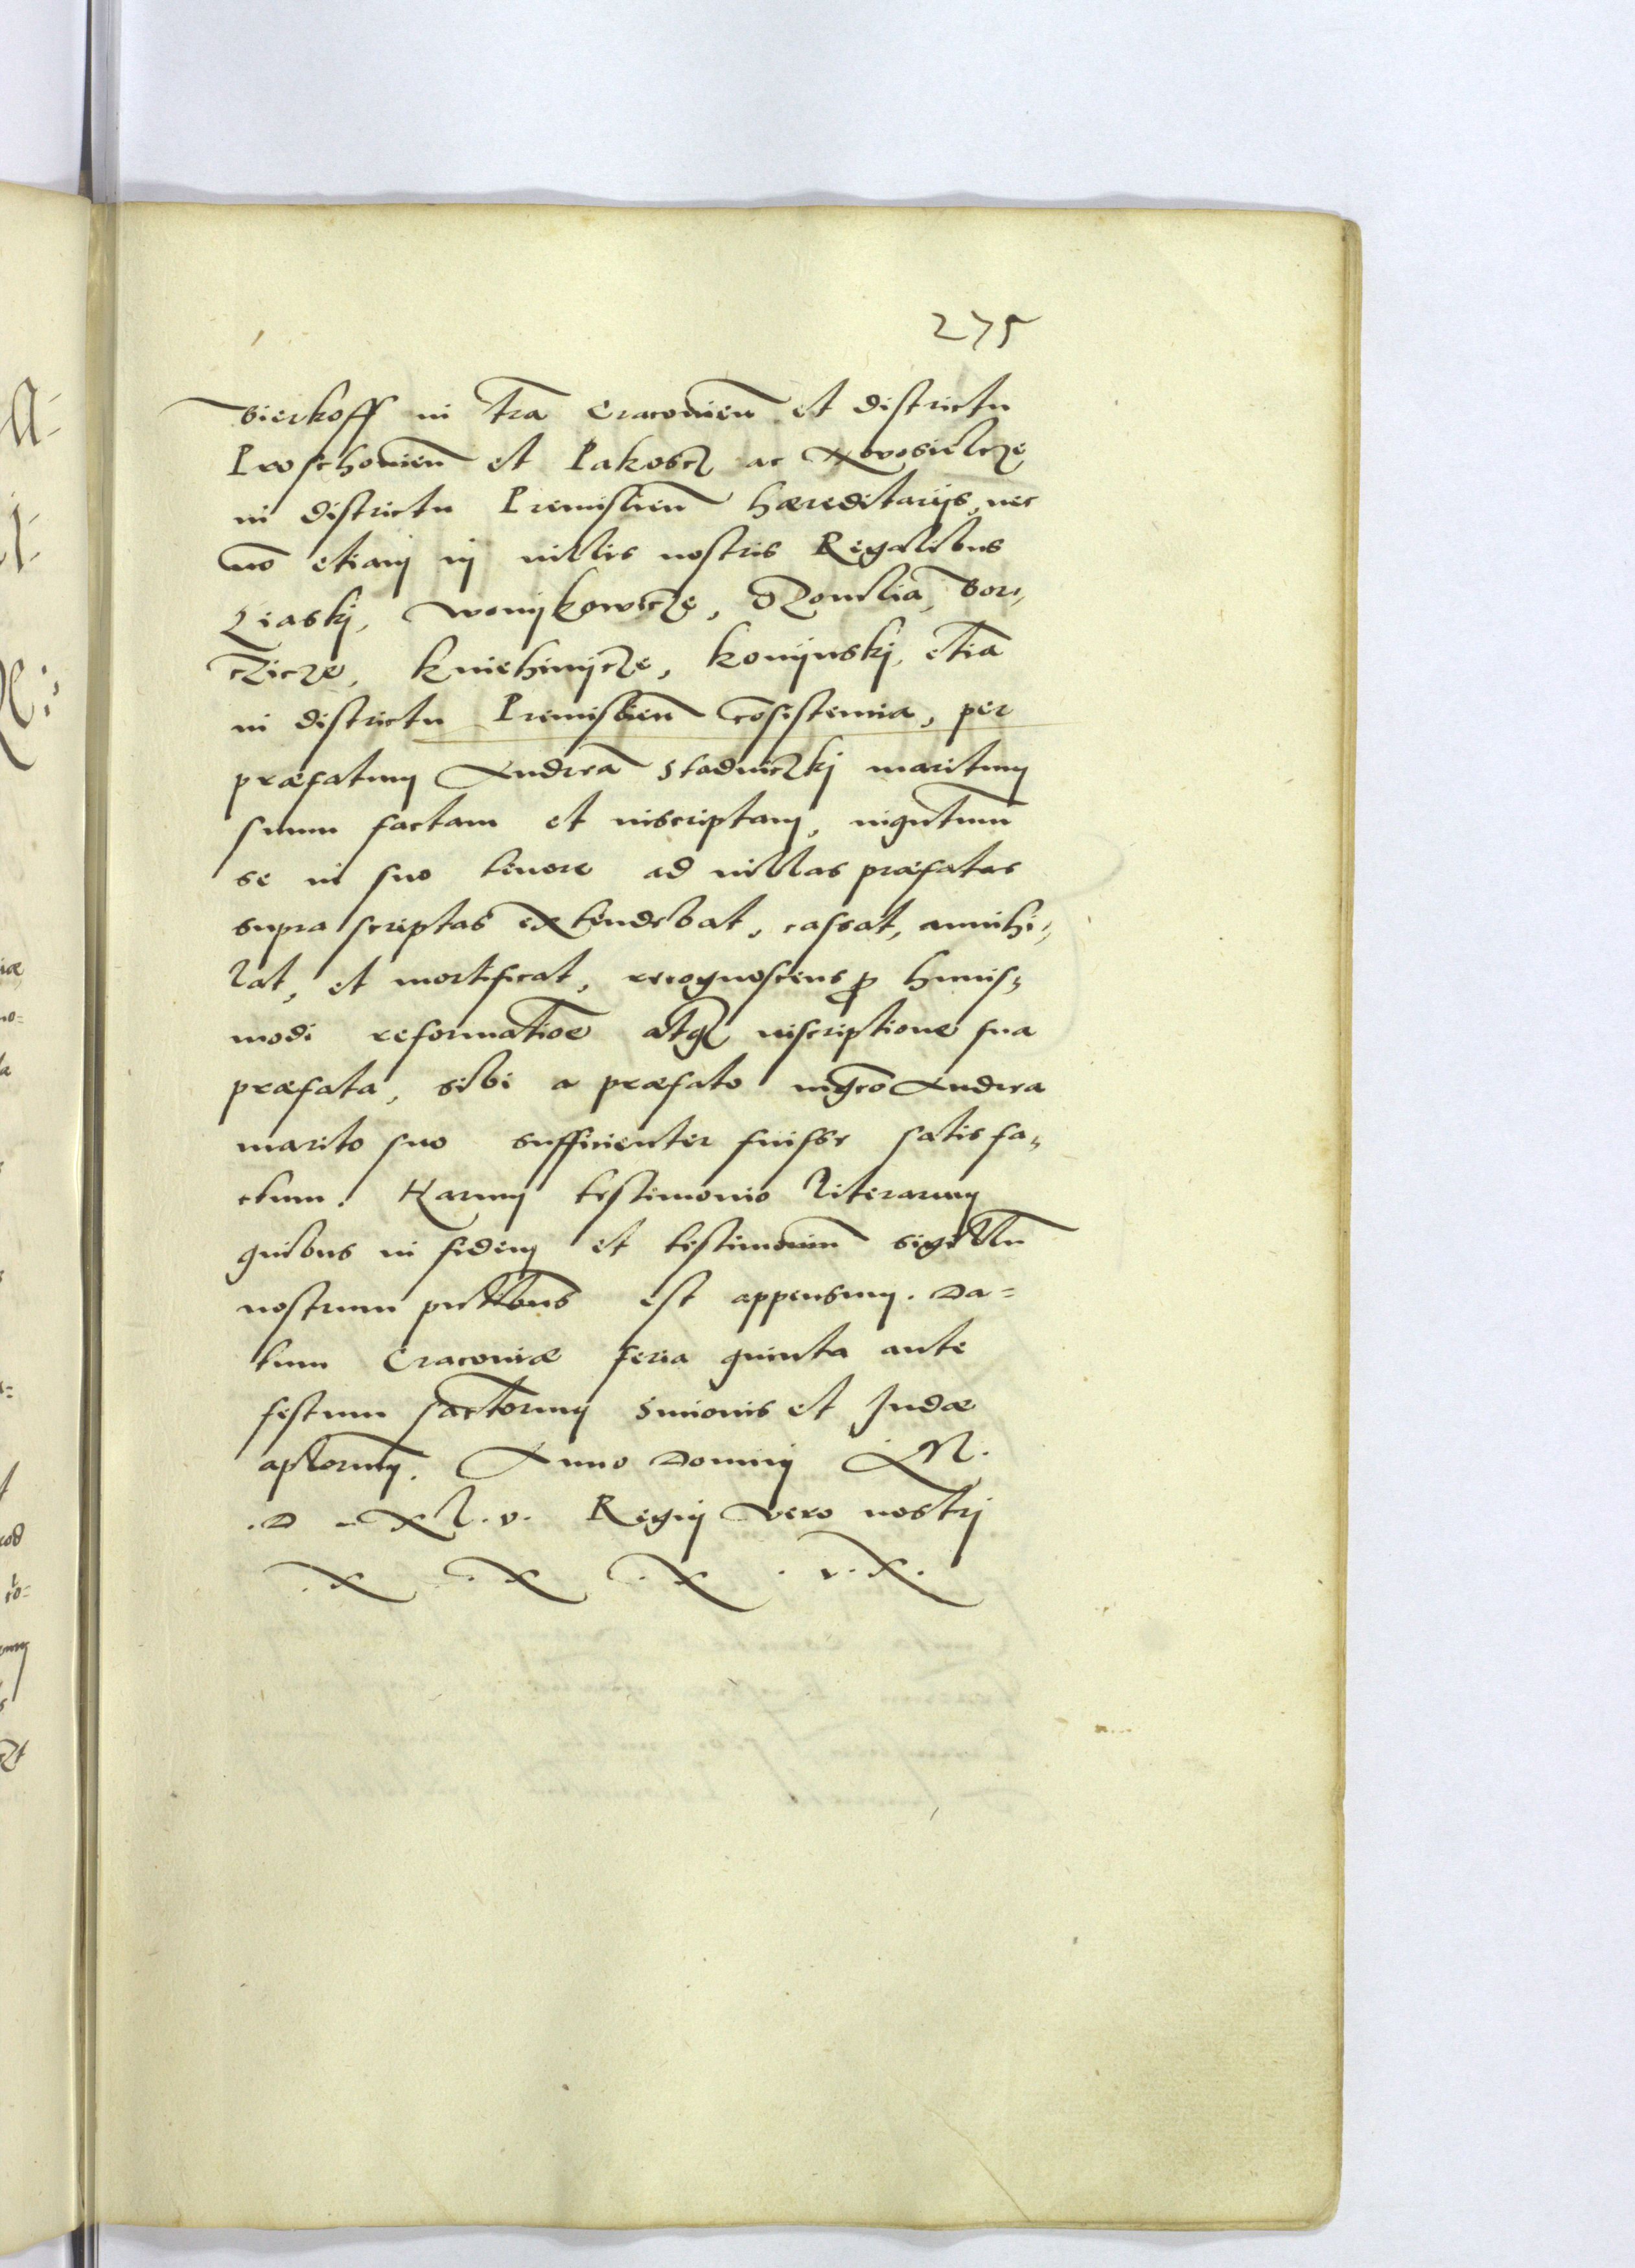 275
Bierkoff in t̄ra Cracovien̄ et districtu
Proschovien̄ et Pakoscz ac Novosielcze
in districtu Premislien̄ hæreditarijs, nec
nō etiam in villis nostris Regalibus
Liaski, Wonijkowicze, Szomlia, Bor„
czicze, Kniehinijcze, Konijuski, etiā
in districtu Premislien̄ cōsistentia, per
præfatum Andreā Stadniczki maritum
suum factam et inscriptam, inqūtum
se in suo tenore ad villas præfatas
supra scriptas extendebat, cassat, annihi„
lat, et mortificat, recognoscens ꝓ huius„
modi reformatiōe atqꝫ inscriptione sua
præfata, sibi a præfato mgcō Andrea
marito suo sufficienter fuisse satisfa„
ctum. Harum testimonio literarum
quibus in fidem et testimoniū sigillū
nostrum pn̄tibus est appensum. Da=
tum Cracoviæ feria quinta ante
festum sāctorum Simonis et Judæ
apl̄orum. Anno Domini M.
.D. XL.v. Regni vero nostri
.X .X .X .v.